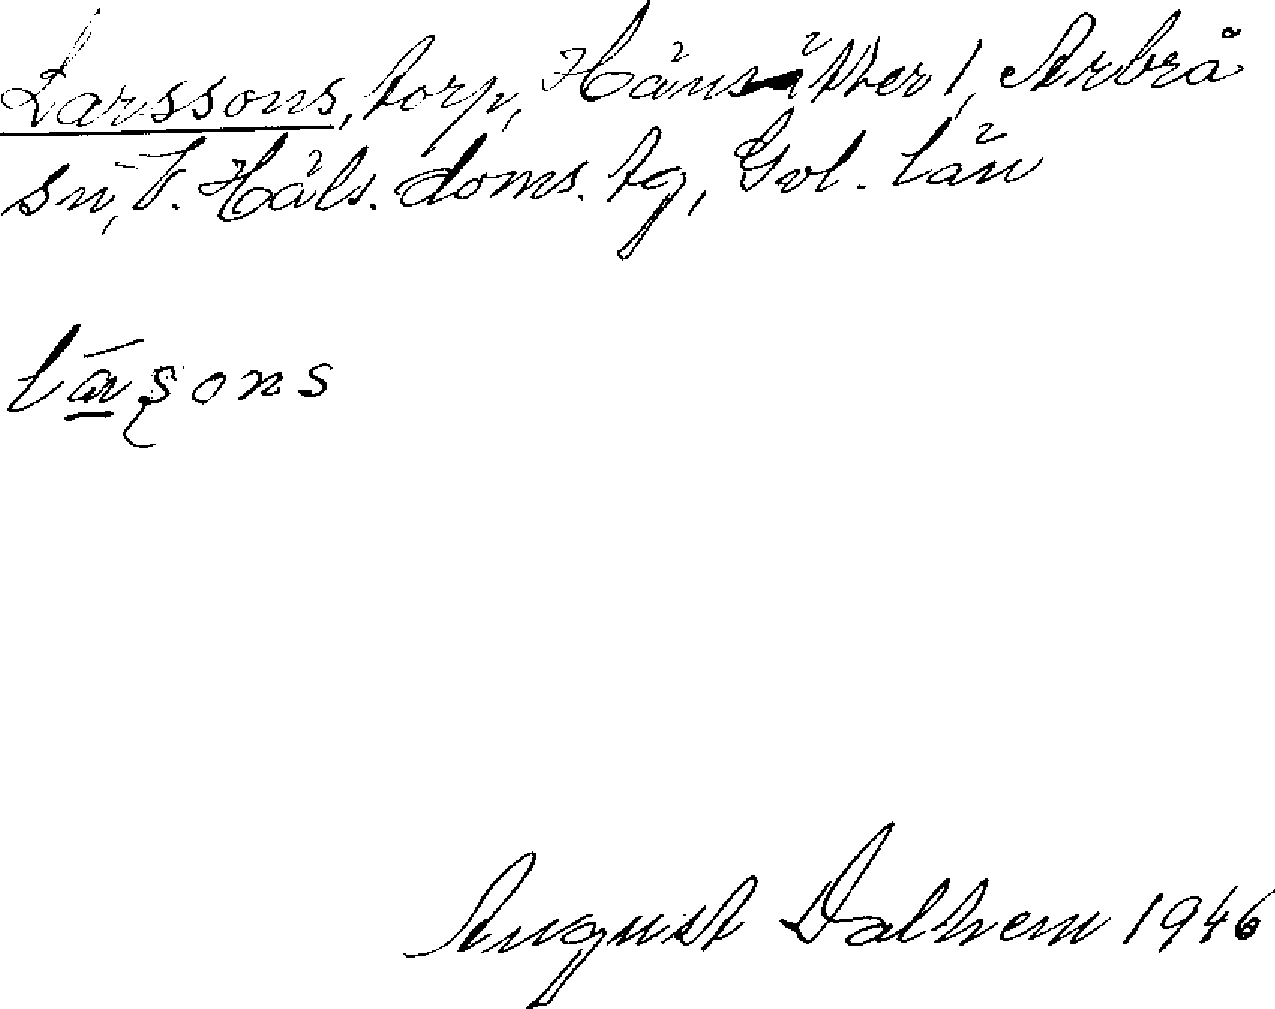 Larssons, torp, Hänsätter 1, Arbrå
sn, V. Häls. doms. tg, Gvl. län
lāsons
August Dalhem 1946